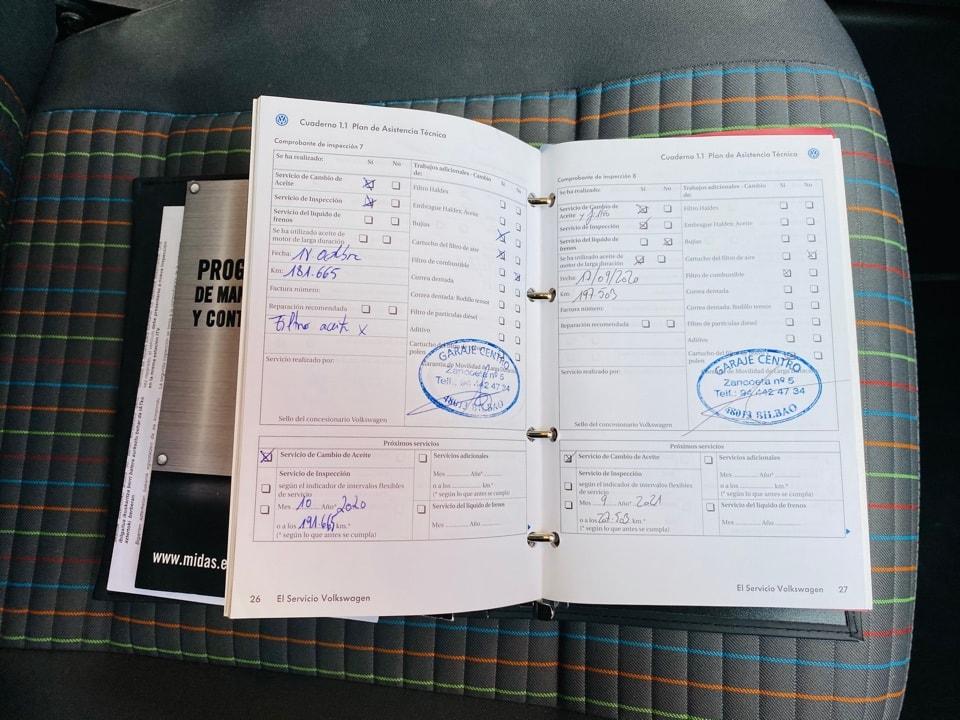 Cuaderno 1.1 Plan de Asistencia Técnica
Comprobante de inspección 7
Se ha realizado: Sí No
Servicio de Cambio de Aceite
Servicio de Inspección
Servicio del líquido de frenos
Se ha utilizado aceite de motor de larga duración
Fecha: 14 octubre
Km: 181.665
Factura número:
Reparación recomendada
Filtro aceite x
Servicio realizado por:
Sello del concesionario Volkswagen
Trabajos adicionales - Cambio de: Sí No
Filtro Haldex
Embrague Haldex: Aceite
Bujías
Cartucho del filtro de aire
Filtro de combustible
Correa dentada
Correa dentada: Rodillo tensor
Filtro de partículas diésel
Aditivo
Cartucho del
polen
Garantía de Movilidad de Larga
GARAJE CENTRO
Zancoeta nº 5
Telf.: 94 442 47 34
48013 BILBAO
Próximos servicios
Servicio de Cambio de Aceite
Servicio de Inspección
según el indicador de intervalos flexibles
de servicio
Mes 10 Año* 2020
o a los 191.665 km.*
(* según lo que antes se cumpla)
Servicios adicionales
Mes ........ Año* ........
o a los ........ km.*
(* según lo que antes se cumpla)
Servicio del líquido de frenos
Mes ........ Año ........
26 El Servicio Volkswagen
Cuaderno 1.1 Plan de Asistencia Técnica
Comprobante de inspección 8
Se ha realizado: Sí No
Servicio de Cambio de
Aceite y filtro
Servicio de Inspección
Servicio del líquido de frenos
Se ha utilizado aceite de motor de larga duración
Fecha: 17/09/2020
Km: 197.503
Factura número:
Reparación recomendada
Servicio realizado por:
Sello del concesionario Volkswagen
Trabajos adicionales - Cambio de: Sí No
Filtro Haldex
Embrague Haldex: Aceite
Bujías
Cartucho del filtro de aire
Filtro de combustible
Correa dentada
Correa dentada: Rodillo tensor
Filtro de partículas diésel
Aditivo
Cartucho del
polen
Garantía de Movilidad de Larga
GARAJE CENTRO
Zancoeta nº 5
Telf.: 94 442 47 34
48013 BILBAO
Próximos servicios
Servicio de Cambio de Aceite
Servicio de Inspección
según el indicador de intervalos flexibles
de servicio
Mes 9 Año* 2021
o a los 27.503 km.*
(* según lo que antes se cumpla)
Servicios adicionales
Mes ........ Año* ........
o a los ........ km.*
(* según lo que antes se cumpla)
Servicio del líquido de frenos
Mes ........ Año ........
El Servicio Volkswagen 27
PROG
DE MAN
Y CONT
www.midas.e